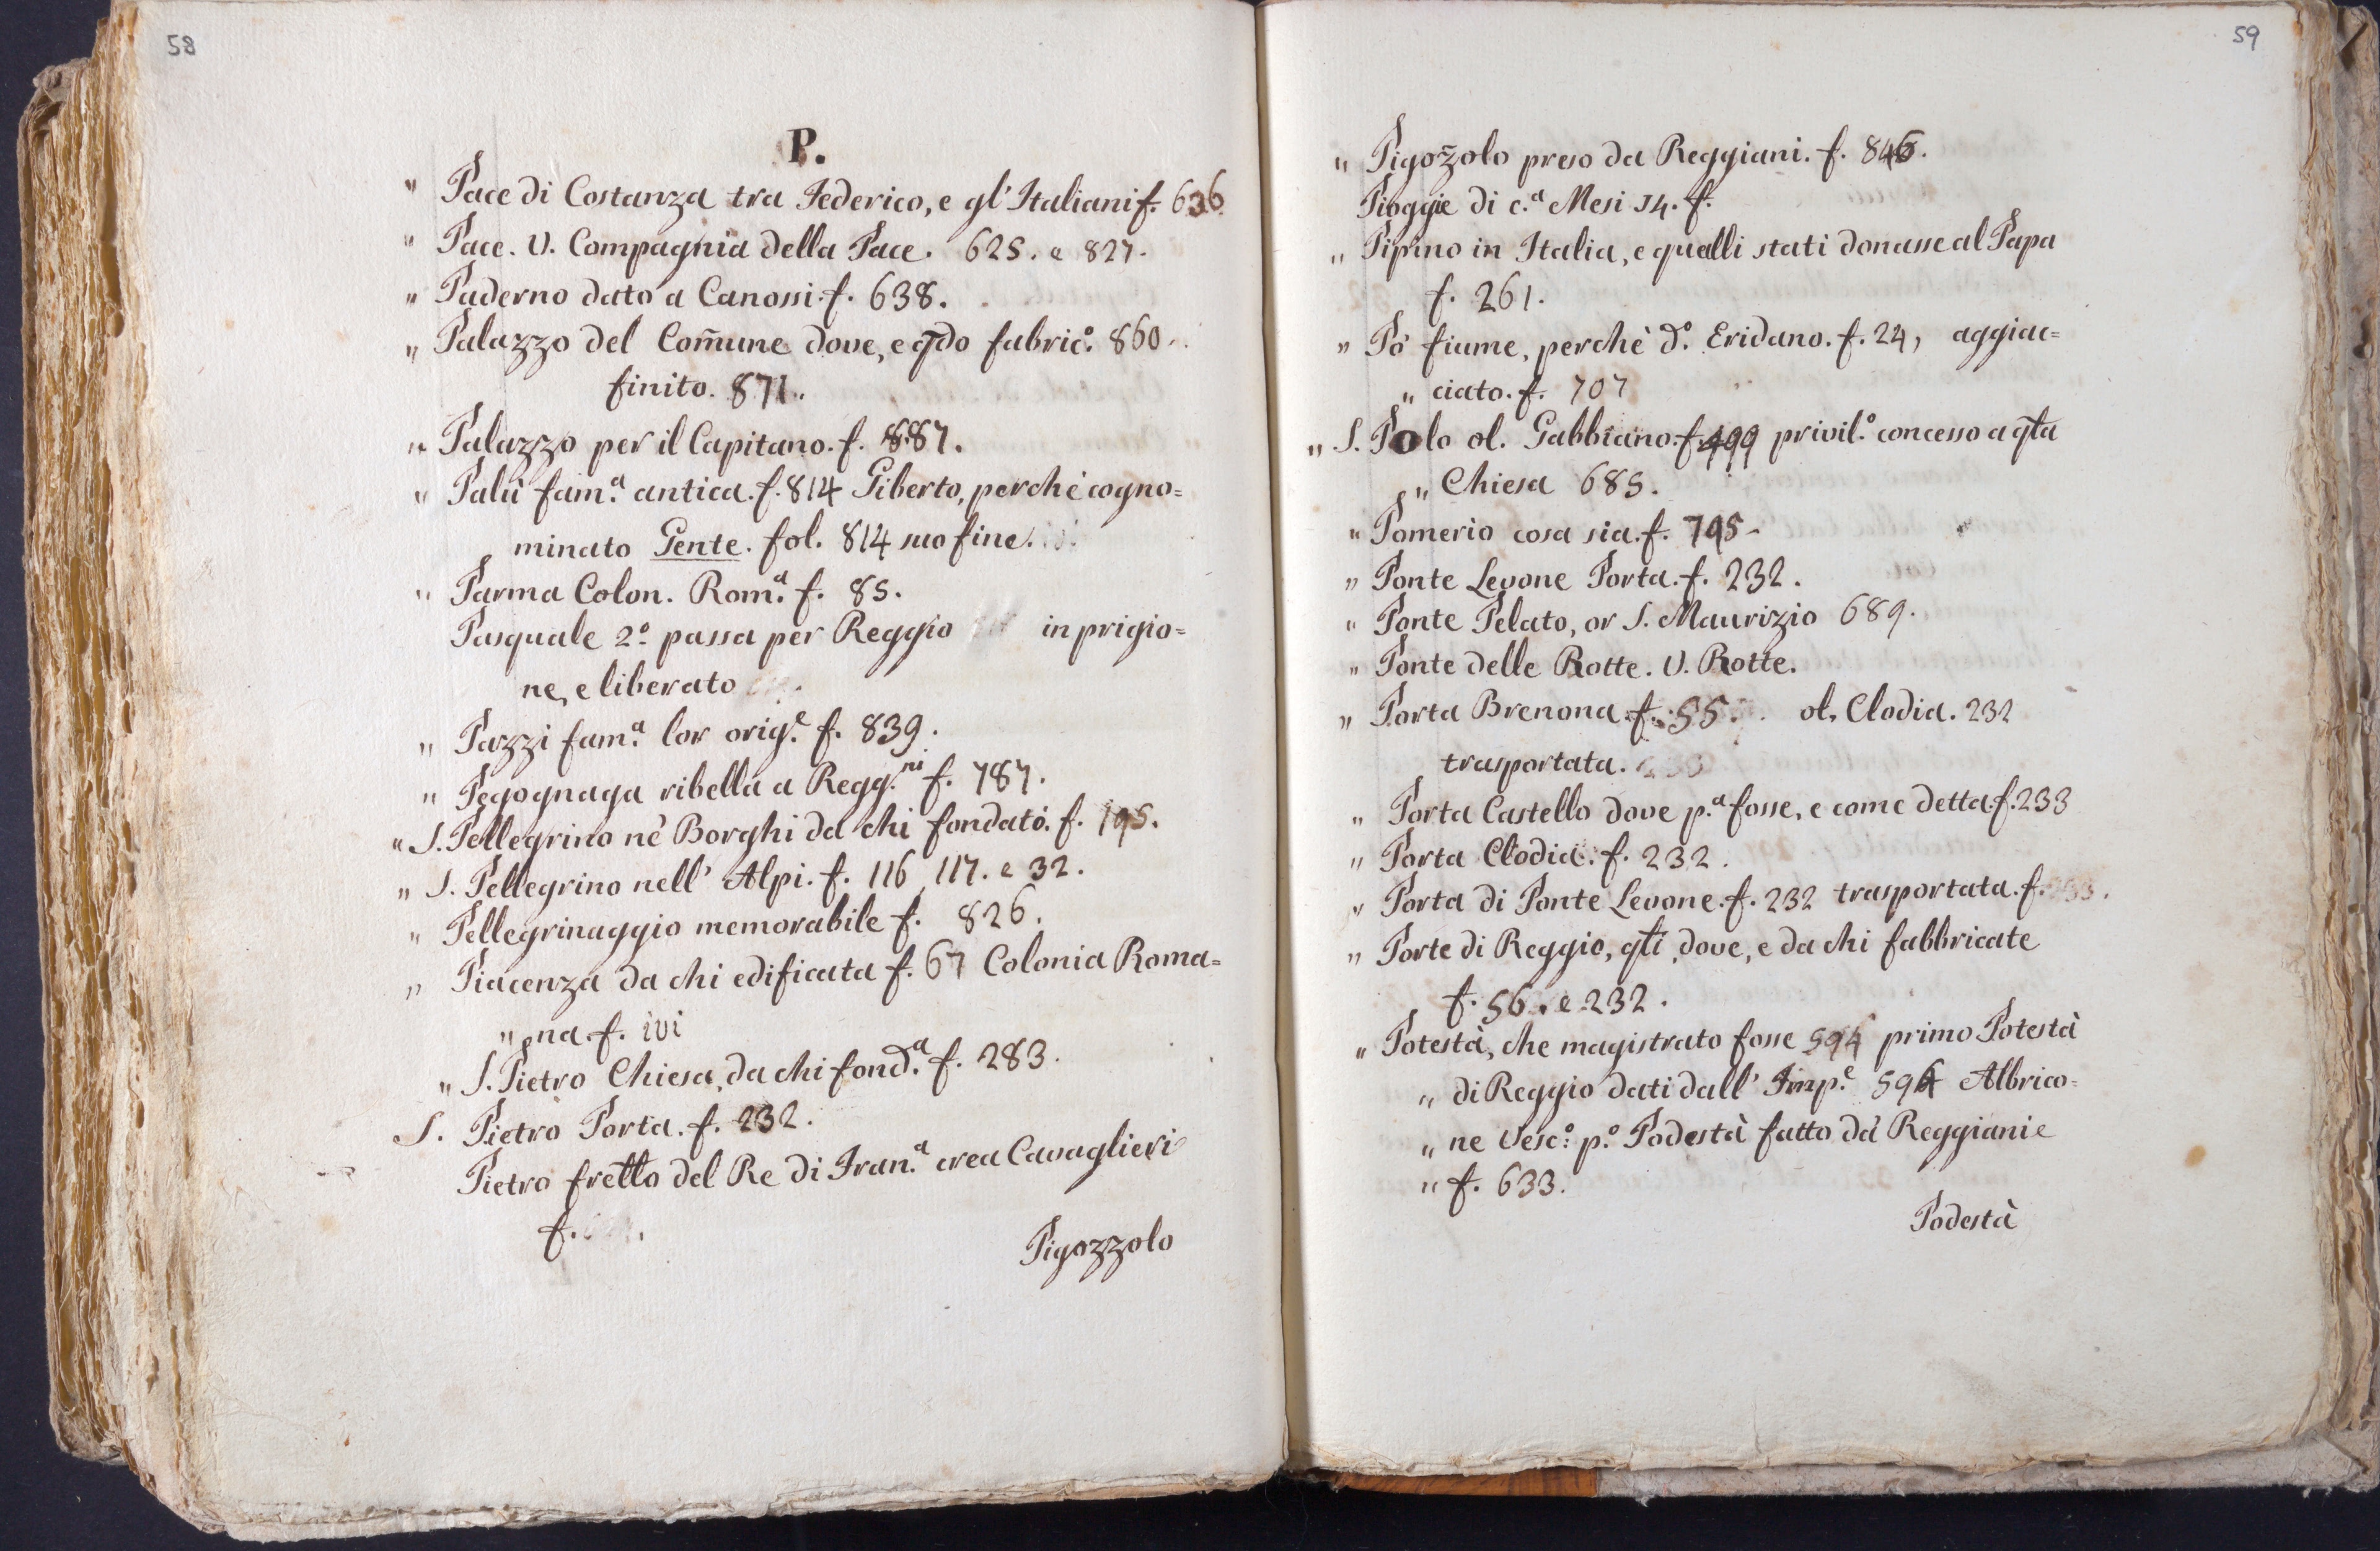 58
P.
" Pace di Costanza tra Federico, e gl' Italiani f. 636
" Pace. V. Compagnia della Pace. 625. e 827.
" Paderno dato a Canossi. f. 638.
" Palazzo del Com̃une dove, e q̃do fabric.º 860.
finito. 871.
" Palazzo per il Capitano. f. 887.
" Palù fam.ª antica. f. 814 Giberto, perchè cogno=
minato Gente. fol. 814 suo fine.
" Parma Colon. Rom.ª f. 85.
Pasquale 2º passa per Reggio in prigio=
ne, e liberato
" Pazzi fam.ª lor orig.e f. 839.
" Pegognaga ribella a Regg.ni f. 787.
" S. Pellegrino nè Borghi da chi fondato. f. 195.
" S. Pellegrino nell' Alpi. f. 116, 117. e 32.
" Pellegrinaggio memorabile f. 826.
" Piacenza da chi edificata f. 67 Colonia Roma=
" na. f. ivi
" S. Pietro Chiesa, da chi fond.ª f. 283.
S. Pietro Porta. f. 232.
Pietro fretto del Re di Fran.ª crea Cavaglieri
f.
Pigozzolo
59
" Pigozzolo preso da Reggiani. f. 846.
Pioggie di c.ª Mesi 14. f.
" Pipino in Italia, e qualli stati donasse al Papa
f. 261.
" Pò fiume, perchè d.º Eridano. f. 24, aggiac=
" ciato. f. 707
" S. Polo ol. Gabbiano. f. 499 privil.º concesso a q̃ta
" Chiesa 685.
" Pomerio cosa sia. f. 795
" Ponte Levone Porta. f. 232.
" Ponte Pelato, or S. Maurizio 689.
" Ponte delle Rotte. V. Rotte.
" Porta Brenona. f. 55. ol. Clodia. 232
trasportata. 233
" Porta Castello dove p.ª fosse, e come detta. f. 233
" Porta Clodia. f. 232.
" Porta di Ponte Levone. f. 232 trasportata. f. 233.
" Porte di Reggio, q̃ti, dove, e da chi fabbricate
f. 56. e 232.
" Potestà, che magistrato fosse 594 primo Potestà
" di Reggio dati dall' Imp.e 594 Albrico=
" ne Vesc.º p.º Podestà fatto dà Reggiani
" f. 633.
Podestà